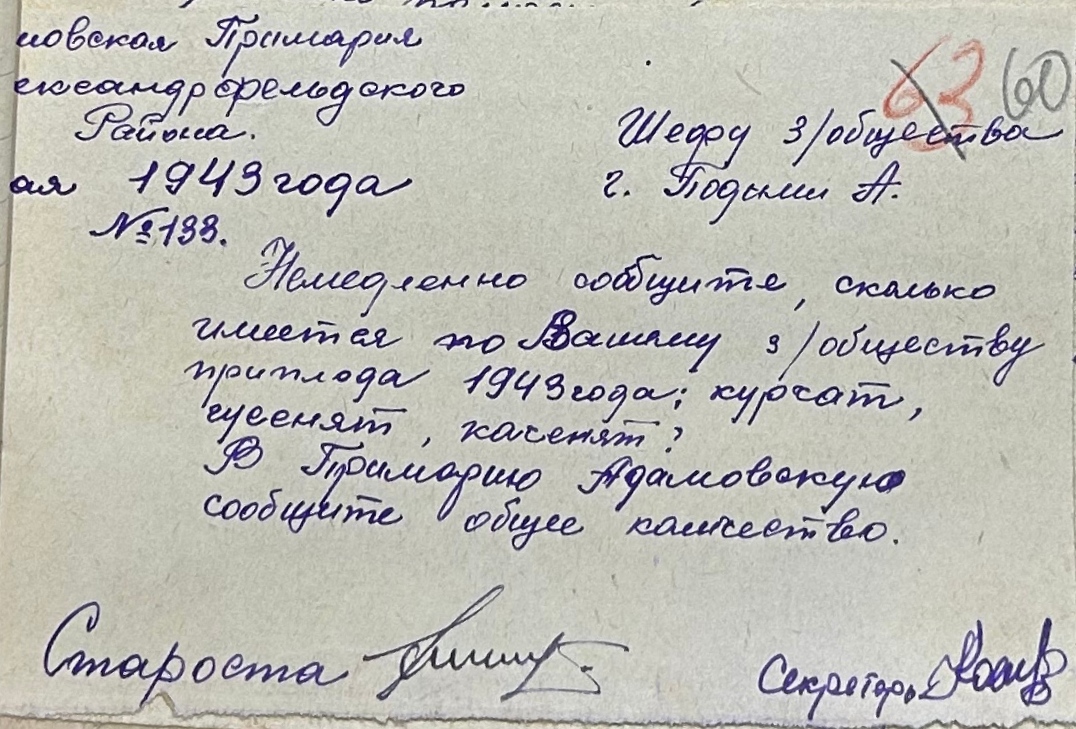 мовская Примария
ександрфельдского
Района.
ая 1943 года
№ 133.
63 60
Шефу з/общества
г. Подыми А.
Немедленно сообщите, сколько
имеется по Вашему з/обществу
приплода 1943 года: курчат,
гусенят, каченят?
В Примарию Адамовскую
сообщите общее количество.
Староста
Секретарь